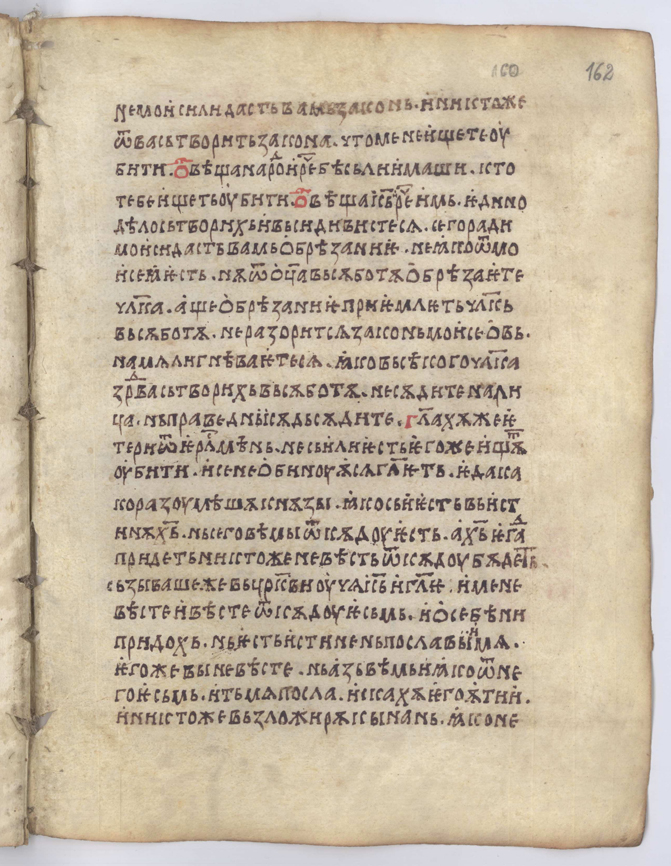 160 162
не мѡиси ли дасть вамь законь · и никтоже
ѿ вась творить закона · что мене ищете оу
бити · ѿвѣща народ и рече бѣсь ли имаши · кто
тебе ищеть оубити · ѿвѣща іс҃ь и рече имь · ѥдино
дѣло сьтворихь и вьси дивите сѧ · сего ради
моиси дасть вамь ѻбрѣзаниѥ · не ꙗко ѿ мо
исеꙗ ѥсть · нѫ ѿ ѻц҃а вь сѫботѫ ѻбрѣзаѥте
чл҃ка · аще ѻбрѣзаниѥ приѥмлѥть чл҃кь
вь сѫботѫ · не разорит сѧ законь моисеѻвь ·
на мѧ ли гнѣваѥте сѧ · ꙗко вьсѣкого чл҃ка
здрава сьтворихь вь сѫботѫ · не сѫдите на ли
ца · нь праведныи сѫдь сѫдите · гл҃ахѫ же ѥ
тери ѿ ѥрл҃мѣнь · не сь ли ѥсть ѥгоже ищѫть
оубити · и се не ѻбиноуѫ сѧ гл҃ѥть · ѥда ка
ко разоумѣшѫ кнѧзы · ꙗко сь ѥсть вь ист
инѫ х҃ь · нь сего вѣмы ѿ кѫдоу ѥсть · а х҃ь ѥгда
придеть никтоже не вѣсть ѿ кѫдоу бѫдеть ·
сьзываше же вь цр҃кви оучѧ іс҃ь и гл҃ѥ · и мене
вѣсте и вѣсте ѿ кѫдоу ѥсьмь · и ѻ себѣ ни
придохь · нь ѥсть истинень пославыи мѧ ·
ѥгоже вы не вѣсте · нь азь вѣмь и ꙗко ѿ не
го ѥсьмь · и ть мѧ посла · искахѫ ѥго ѧти и ·
и никтоже вьзложи рѫкы на нь · ꙗко не